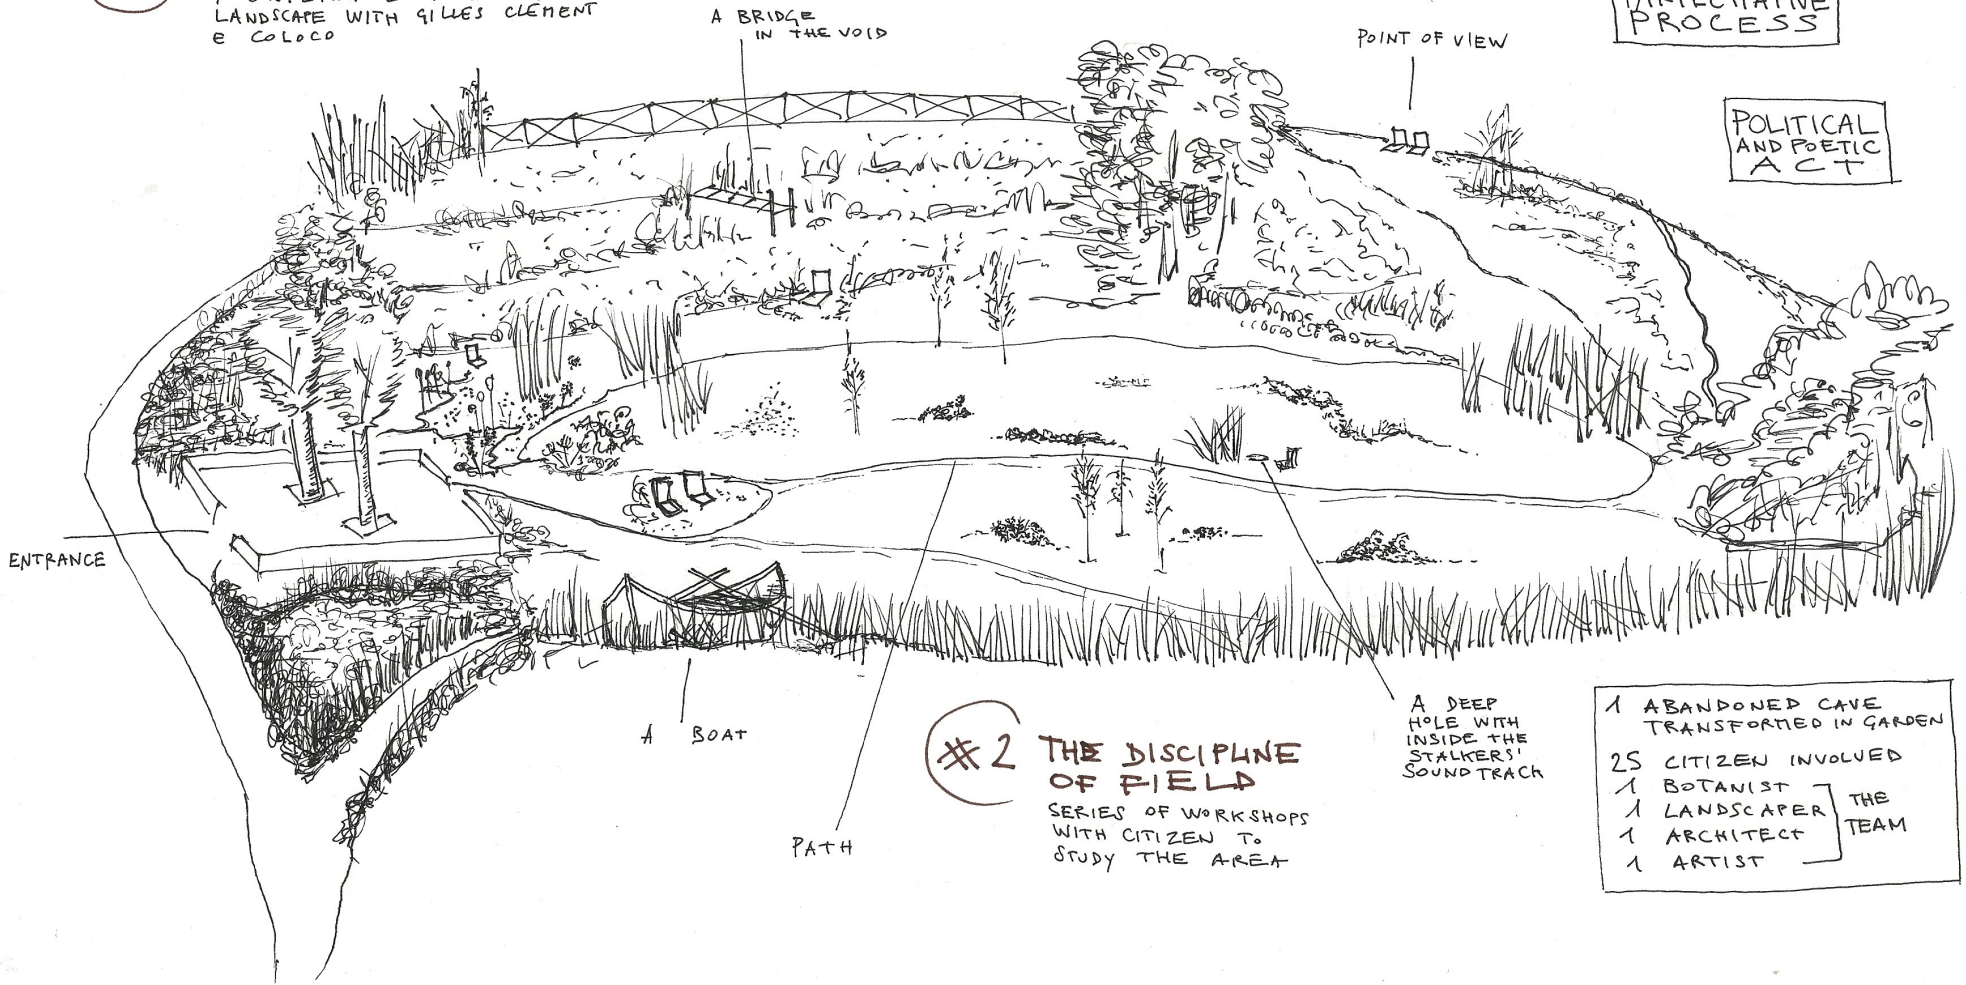 LANDSCAPE WITH GILLES CLÉMENT
e COLOCO
A BRIDGE
IN THE VOID
POINT OF VIEW
PROCESS
POLITICAL
AND POETIC
ACT
ENTRANCE
A BOAT
PATH
#2 THE DISCIPLINE
OF FIELD
SERIES OF WORKSHOPS
WITH CITIZEN TO
STUDY THE AREA
A DEEP
HOLE WITH
INSIDE THE
STALKERS'
SOUNDTRACK
1 ABANDONED CAVE
TRANSFORMED IN GARDEN
25 CITIZEN INVOLVED
1 BOTANIST
1 LANDSCAPER
1 ARCHITECT
1 ARTIST
THE
TEAM